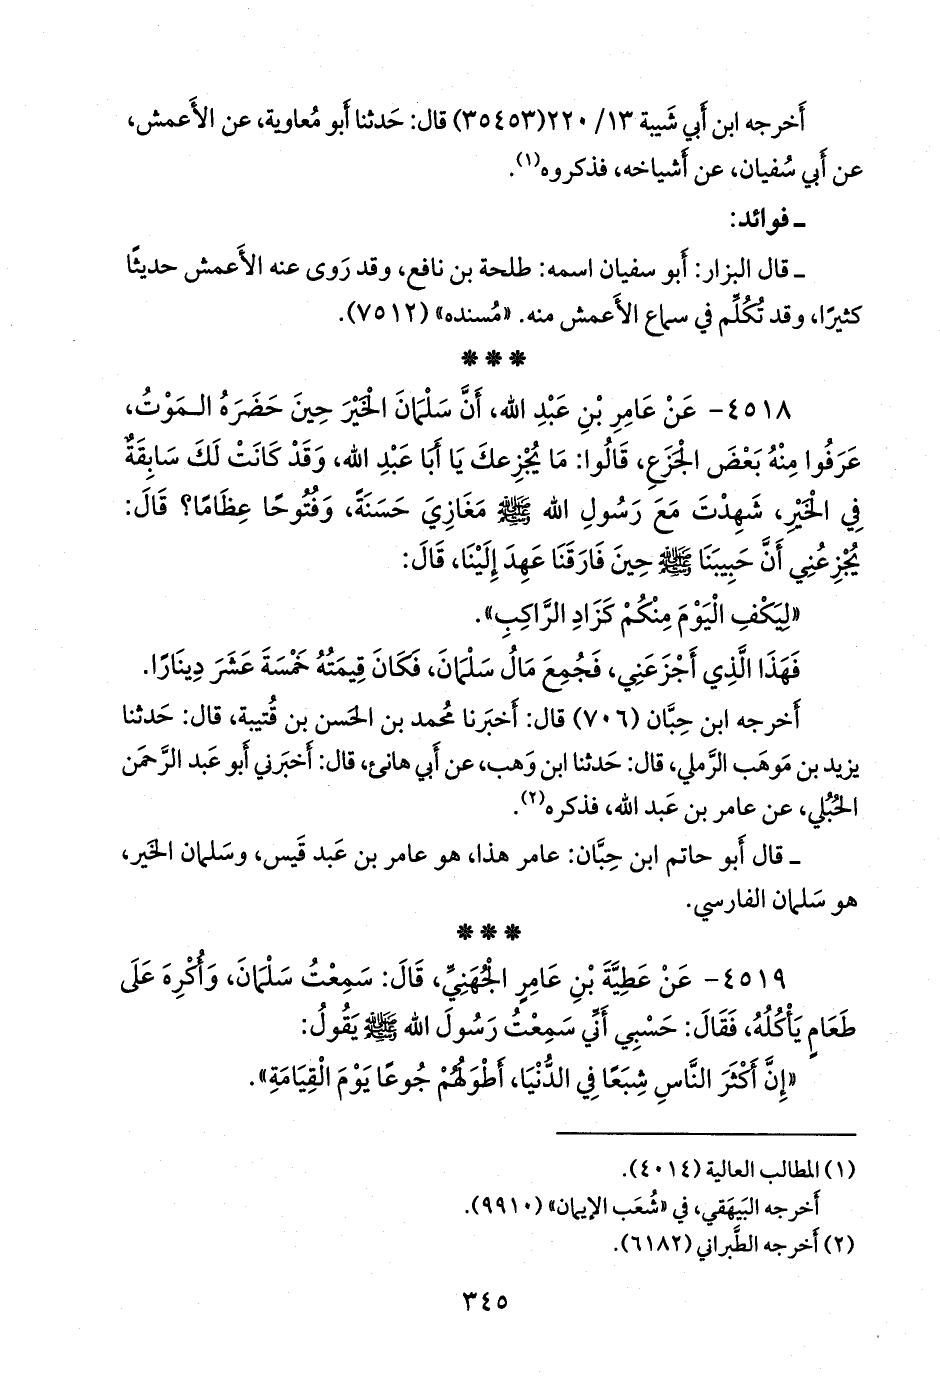 أَخرجه ابن أَبي شَيبة ١٣/ ٢٢٠(٣٥٤٥٣) قال: حَدثنا أَبو مُعاوية، عن الأَعمش،
عن أَبي سُفيان، عن أَشياخه، فذكروه(١).
ـ فوائد:
ـ قال البزار: أَبو سفيان اسمه: طلحة بن نافع، وقد رَوى عنه الأَعمش حديثًا
كثيرًا، وقد تُكُلِّم في سماع الأَعمش منه. «مُسنده» (٧٥١٢).
***
٤٥١٨- عَنْ عَامِرِ بْنِ عَبْدِ الله، أَنَّ سَلْمَانَ الْخَيْرَ حِينَ حَضَرَهُ الـمَوْتُ،
عَرَفُوا مِنْهُ بَعْضَ الْجَزَعِ، قَالُوا: مَا يُجْزِعكَ يَا أَبَا عَبْدِ الله، وَقَدْ كَانَتْ لَكَ سَابِقَةٌ
فِي الْخَيْرِ، شَهِدْتَ مَعَ رَسُولِ الله ﷺ مَغَازِيَ حَسَنَةً، وَفُتُوحًا عِظَامًا؟ قَالَ:
يُجْزِعُنِي أَنَّ حَبِيبَنَا ﷺ حِينَ فَارَقَنَا عَهِدَ إِلَيْنَا، قَالَ:
«لِيَكْفِ الْيَوْمَ مِنْكُمْ كَزَادِ الرَّاكِبِ».
فَهَذَا الَّذِي أَجْزَعَنِي، فَجُمِعَ مَالُ سَلْمَانَ، فَكَانَ قِيمَتُهُ خَمْسَةَ عَشَرَ دِينَارًا.
أَخرجه ابن حِبَّان (٧٠٦) قال: أَخبَرنا مُحمد بن الحَسن بن قُتيبة، قال: حَدثنا
يزيد بن مَوهَب الرَّملي، قال: حَدثنا ابن وَهب، عن أَبي هانئ، قال: أَخبَرني أَبو عَبد الرَّحمَن
الحُبُلي، عن عامر بن عَبد الله، فذكره(٢).
ـ قال أَبو حاتم ابن حِبَّان: عامر هذا، هو عامر بن عَبد قَيس، وسَلمان الخَير،
هو سَلمان الفارسي.
***
٤٥١٩- عَنْ عَطِيَّةَ بْنِ عَامِرٍ الْجُهَنِيِّ، قَالَ: سَمِعْتُ سَلْمَانَ، وَأُكْرِهَ عَلَى
طَعَامٍ يَأْكُلُهُ، فَقَالَ: حَسْبِي أَنِّي سَمِعْتُ رَسُولَ الله ﷺ يَقُولُ:
«إِنَّ أَكْثَرَ النَّاسِ شِبَعًا فِي الدُّنْيَا، أَطْوَلُهُمْ جُوعًا يَوْمَ الْقِيَامَةِ».
(١) المطالب العالية (٤٠١٤).
أَخرجه البَيهَقي، في «شُعَب الإيمان» (٩٩١٠).
(٢) أَخرجه الطَّبراني (٦١٨٢).
٣٤٥